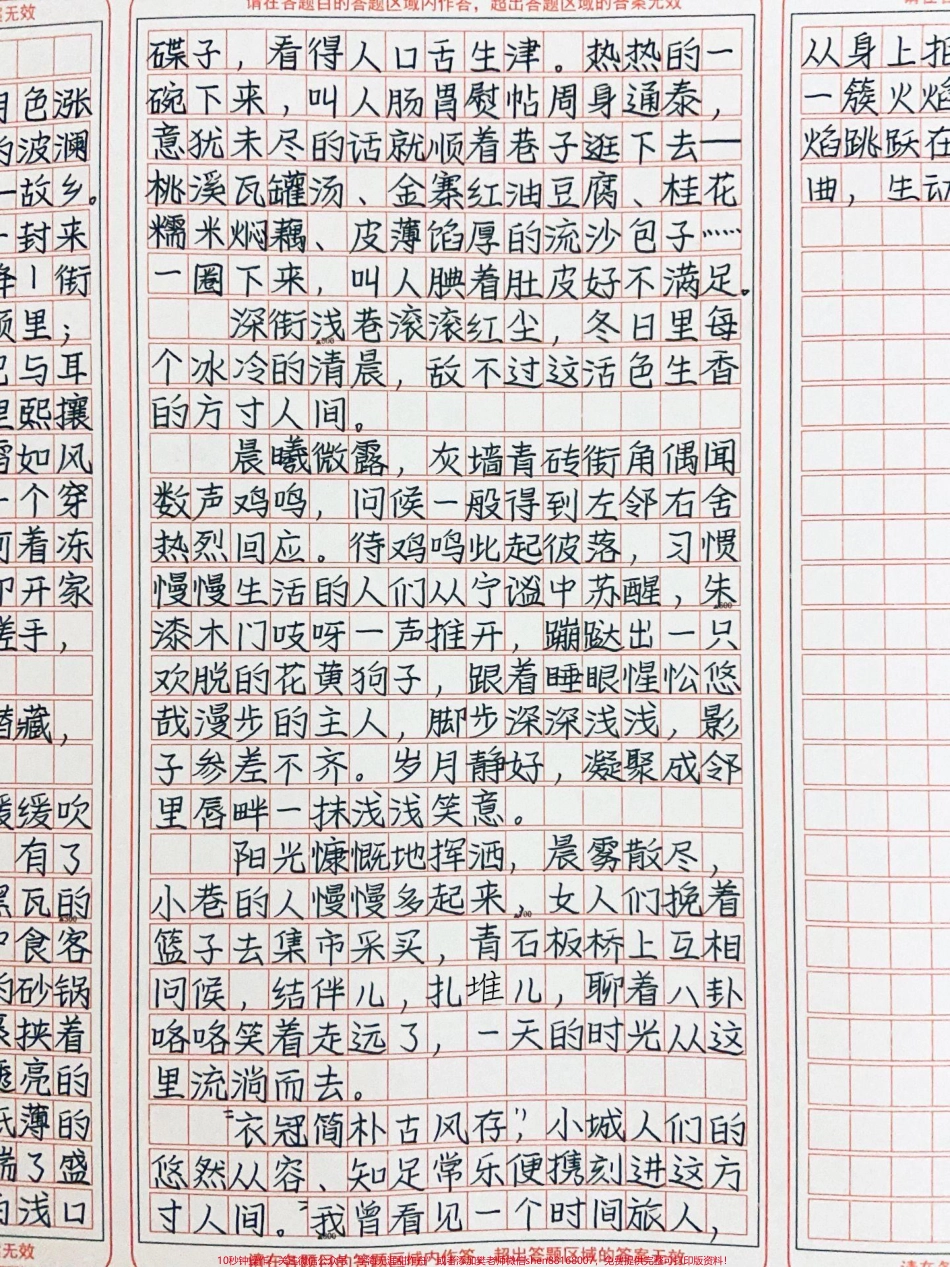 案无效
月色涨
的波澜
一故乡。
一封来
街
里；
与耳
里熙攘
如风
一个穿
着冻
开家
搓手，
潜藏，
缓缓吹
有了
黑瓦的
食客
的砂锅
挟着
透亮的
纸薄的
端了盛
的浅口
案无效
请在各题目的答题区域内作答，超出答题区域的答案无效
碟子，看得人口舌生津。热热的一
碗下来，叫人肠胃熨帖周身通泰，
意犹未尽的话就顺着巷子逛下去——
桃溪瓦罐汤、金寨红油豆腐、桂花
糯米焖藕、皮薄馅厚的流沙包子……
一圈下来，叫人腆着肚皮好不满足。
深街浅巷滚滚红尘，冬日里每
个冰冷的清晨，敌不过这活色生香
的方寸人间。
晨曦微露，灰墙青砖街角偶闻
数声鸡鸣，问候一般得到左邻右舍
热烈回应。待鸡鸣此起彼落，习惯
慢慢生活的人们从宁谧中苏醒，朱
漆木门吱呀一声推开，蹦跶出一只
欢脱的花黄狗子，跟着睡眼惺忪悠
哉漫步的主人，脚步深深浅浅，影
子参差不齐。岁月静好，凝聚成邻
里唇畔一抹浅浅笑意。
阳光慷慨地挥洒，晨雾散尽，
小巷的人慢慢多起来，女人们挽着
篮子去集市采买，青石板桥上互相
问候，结伴儿，扎堆儿，聊着八卦
咯咯笑着走远了，一天的时光从这
里流淌而去。
“衣冠简朴古风存”，小城人们的
悠然从容、知足常乐便携刻进这方
寸人间。我曾看见一个时间旅人，
请在各题目的答题区域内作答，超出答题区域的答案无效
从身上拍
一簇火焰
焰跳跃在
曲，生动